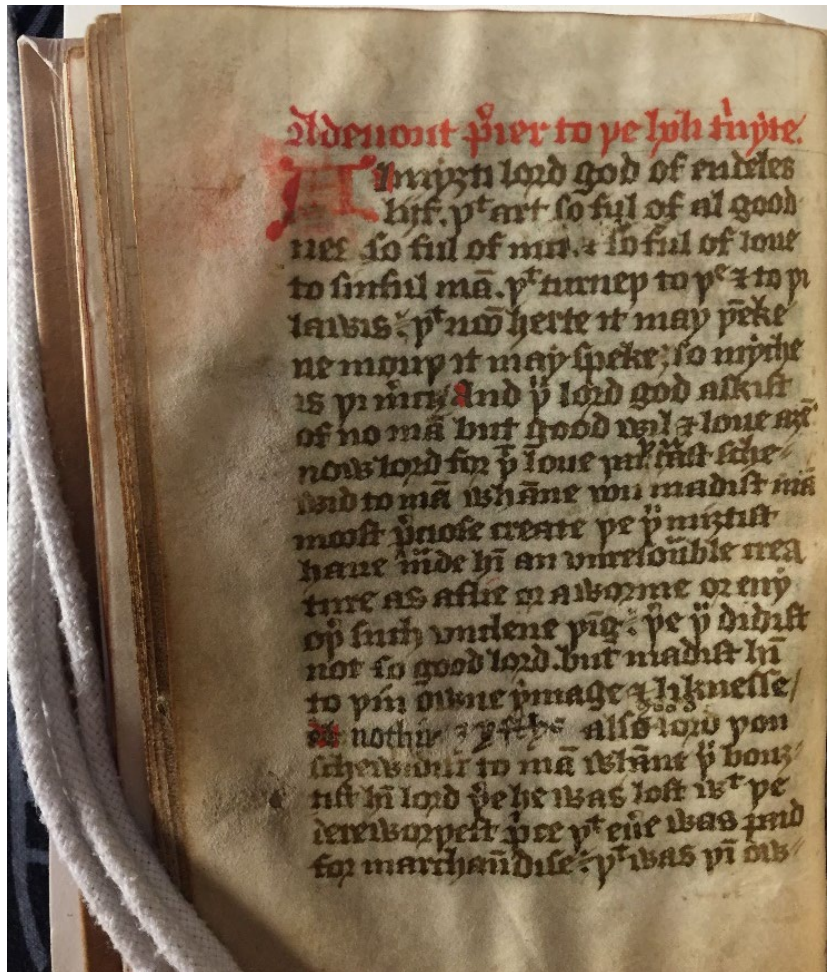 A deuout p̉ier to þe holi t̉nyte.
Almyȝti lord god of endeles
lijf. þᵗ art so ful of al good
nes so ful of mꝛ̉. ⁊ so ful of loue
to sinful mā. þᵗ turneþ to þᵉ ⁊ to þi
lawis: þᵗ noō herte it may þēke
ne mouþ it may speke; so myche
is þi m̉cy. And þͧ lord god askist
of no mā but good wil ⁊ loue aȝē
now lord for þͭ loue þͭ f̉rst sche-
wid to mā whāne þou madist mā
moost p̉ciose creatͬe þe þͧ myȝtist
haue maͣde hī an vnresoūble crea
ture as a flie or a worme or eny
oþ̉ such vnclene þīg: ȝe þͧ didist
not so good lord. but madist hī
to þin owne ymage ⁊ liknesse/
nothī also lord þou
schewidist to mā whāne þͧ bouȝ-
tist hī lord ȝe he was lost wᵗ þe
dereworþest p̉ce þᵗ eūe was paid
for marchaūdise: þᵗ was þī ow-